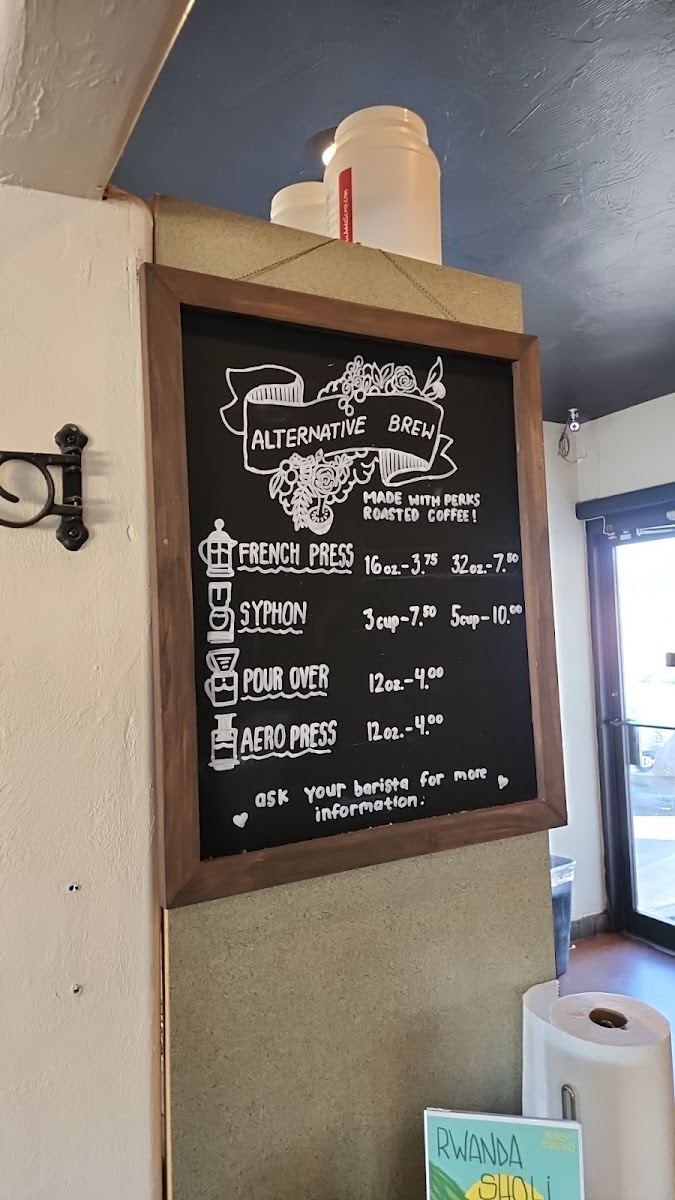 ALTERNATIVE BREW
MADE WITH PERKS
ROASTED COFFEE!
FRENCH PRESS 16oz.-3.75 32oz.-7.50
SYPHON 3cup-7.50 5cup-10.00
POUR OVER 12oz.-4.00
AERO PRESS 12oz.-4.00
ask your barista for more
information.
RWANDA
SHOLI